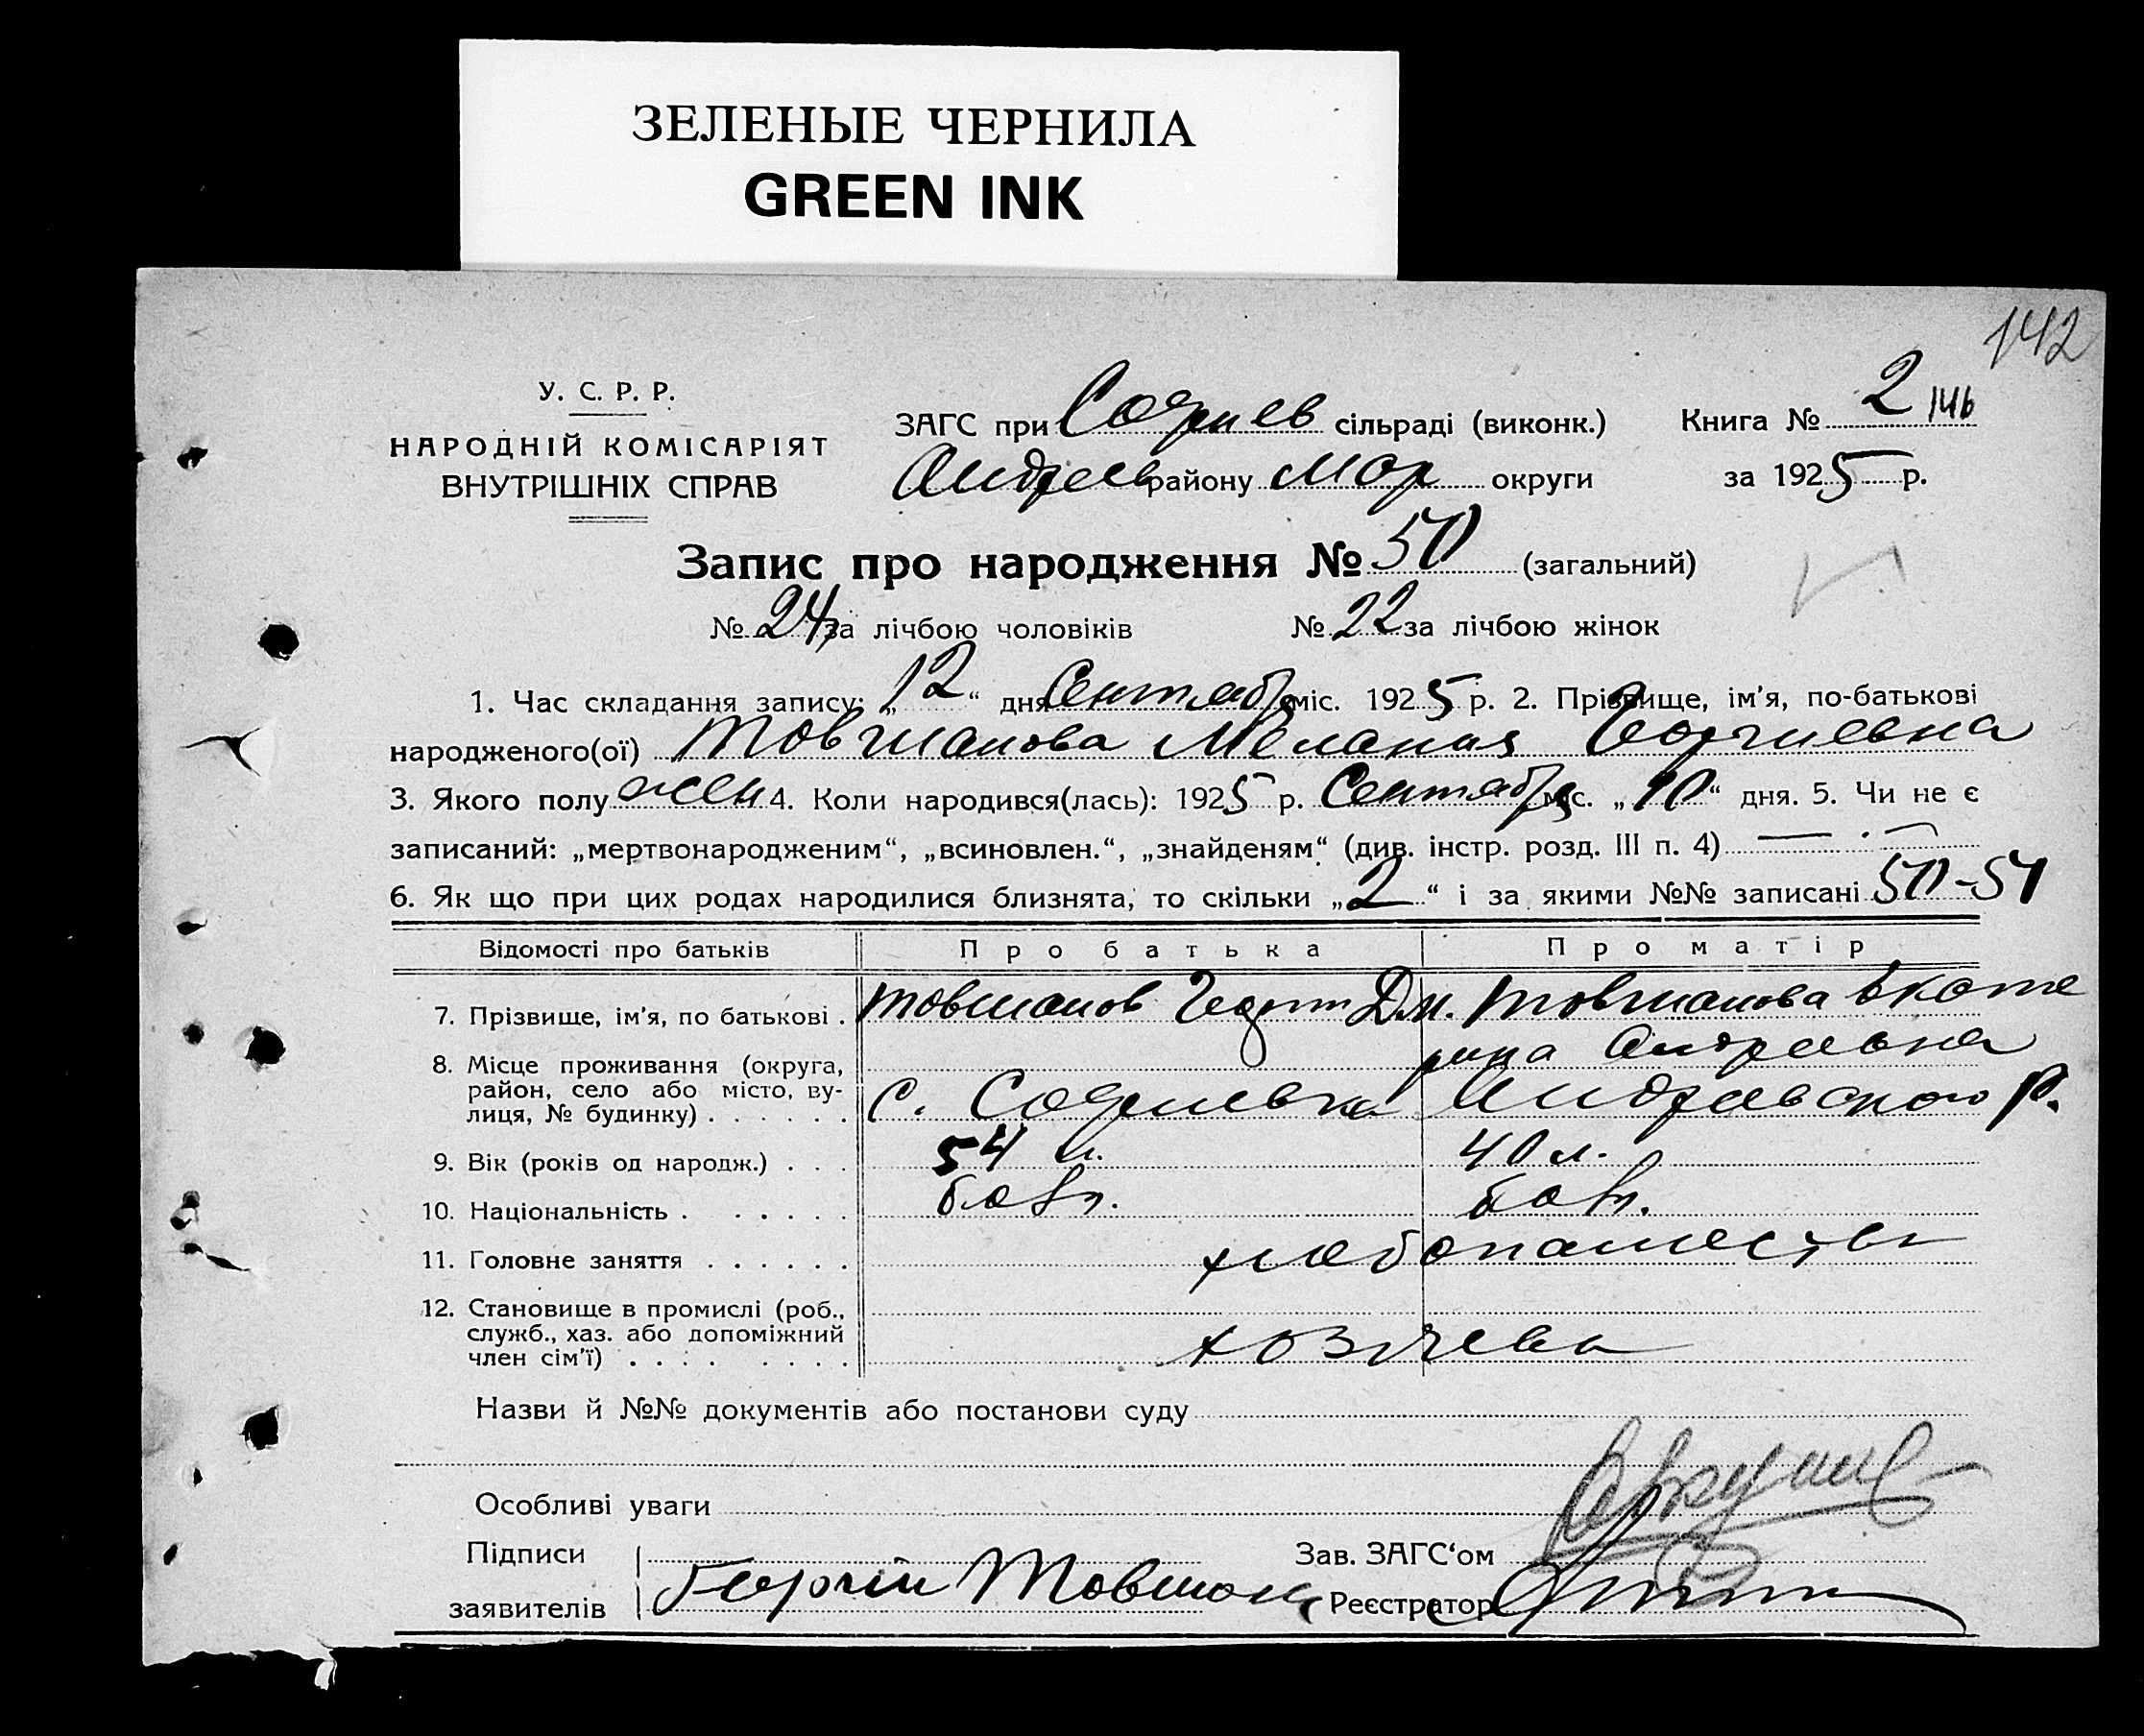 ЗЕЛЕНЫЕ ЧЕРНИЛА
GREEN INK
142
У. С. Р. Р.
НАРОДНІЙ КОМІСАРІЯТ
ВНУТРІШНІХ СПРАВ
ЗАГС при Софиев сільраді (виконк.)
Андреев району Мар округи
Книга № 2 146
за 1925 р.
Запис про народження № 50 (загальний)
№ 24 за лічбою чоловіків № 22 за лічбою жінок
1. Час складання запису: „12“ дня Сентября міс. 1925 р. 2. Прізвище, ім'я, по-батькові
народженого(ої) Товшанова Мелания Георгиевна
3. Якого полу жен 4. Коли народився(лась): 1925 р. Сентября міс. „10“ дня. 5. Чи не є
записаний: „мертвонародженим“, „всиновлен.“, „знайденям“ (див. інстр. розд. III п. 4)
6. Як що при цих родах народилися близнята, то скільки „2“ і за якими №№ записані 50-51
Відомості про батьків Про батька Про матір
7. Прізвище, ім'я, по батькові . Товшанов Георг Дм. Товшанова Екате
рина Андреевна
8. Місце проживання (округа,
район, село або місто, ву-
лиця, № будинку) . . . . . . с. Софиевка Андреевского р.
9. Вік (років од народж.) . . . 54 л. 40 л.
10. Національність . . . . . . болг. болг.
11. Головне заняття . . . . . . хлебопашество
12. Становище в промислі (роб.,
служб., хаз. або допоміжний
член сім'ї) . . . . . . . . хозяева
Назви й №№ документів або постанови суду
Особливі уваги
Підписи
заявителів Георгій Товшан
Зав. ЗАГС‘ом
Реєстратор